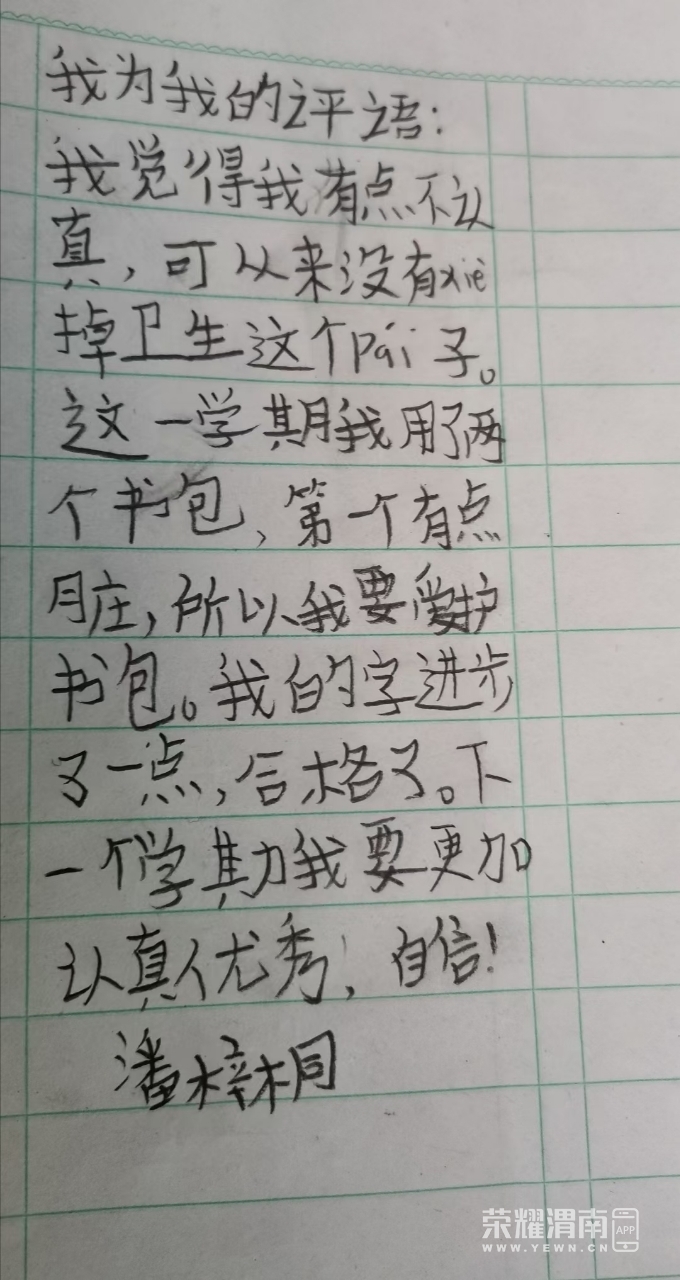 我为我的评语:
我觉得我有点不认
真,可以来没有xiè
掉卫生这个pái子。
这一学期我用了两
个书包,第一个有点
脏,所以我要爱护
书包。我的字进步
了一点,合格了。下
一个学期我要更加
认真优秀,自信!
潘梓桐
荣耀渭南APP
WWW.YEWN.CN